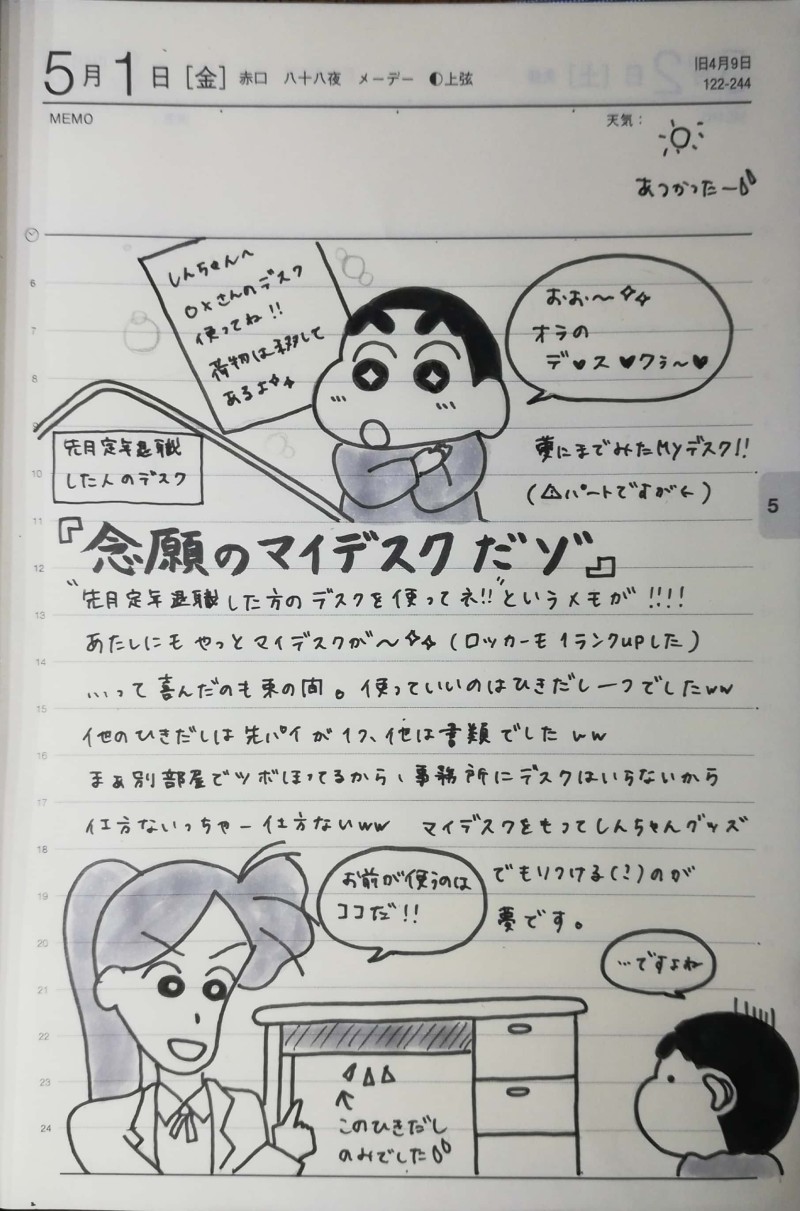 5月1日[金] 赤口 八十八夜 メーデー ◐上弦
旧4月9日
122-244
MEMO
天気：
あつかったー
しんちゃんへ
○×さんのデスク
使ってね!!
荷物は移して
あるよ
おお〜
オラの
デ♥ス♥クぅ〜♥
先月定年退職
した人のデスク
夢にまでみたMyデスク!!
(⚠パートですが←)
『念願のマイデスクだゾ』
“先月定年退職した方のデスクを使ってネ!!”というメモが!!!!
あたしにもやっとマイデスクが〜(ロッカーも1ランクupした)
…って喜んだのも束の間。使っていいのはひきだし一つでしたww
他のひきだしは先パイが1つ、他は書類でした ww
まぁ別部屋でツボほってるから、事務所にデスクはいらないから
仕方ないっちゃー仕方ないww マイデスクをもってしんちゃんグッズ
でもりつける(?)のが
夢です。
お前が使うのは
ココだ!!
…ですよね
↑
このひきだし
のみでした
5
6
7
8
9
10
11
12
13
14
15
16
17
18
19
20
21
22
23
24